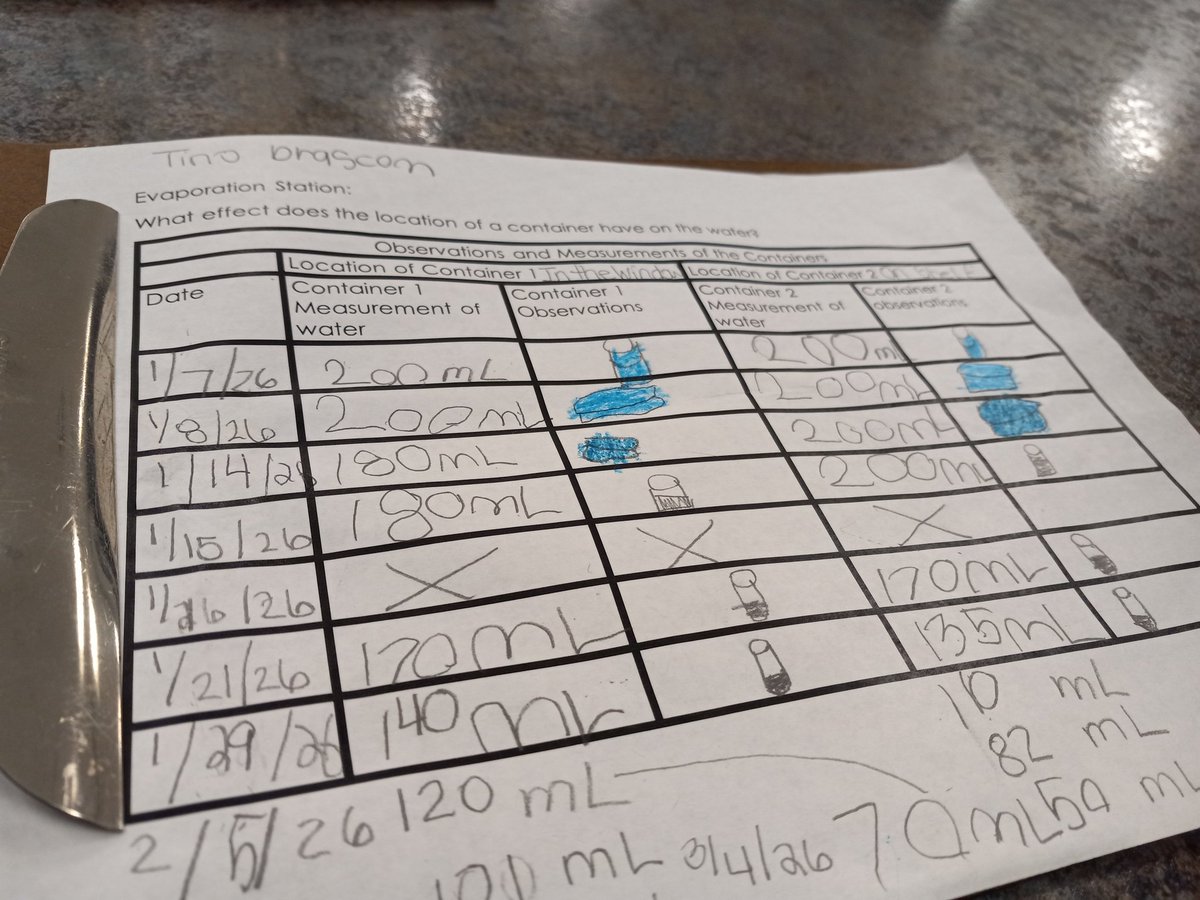 Tino brascom
Evaporation Station:
What effect does the location of a container have on the water?
Observations and Measurements of the Containers
Location of Container 1 In the Window Location of Container 2 on
Date Container 1 Measurement of water Container 1 Observations Container 2 Measurement of water Container 2 observations
1/7/26 200 mL 200 mL
1/8/26 200 mL 200 mL
1/14/26 180 mL 200 mL
1/15/26 180 mL 200 mL
1/16/26 X X X
1/21/26 170 mL 170 mL
1/29/26 140 mL 135 mL
10 mL
82 mL
2/5/26 120 mL
100 mL 3/4/26 70 mL 50 mL